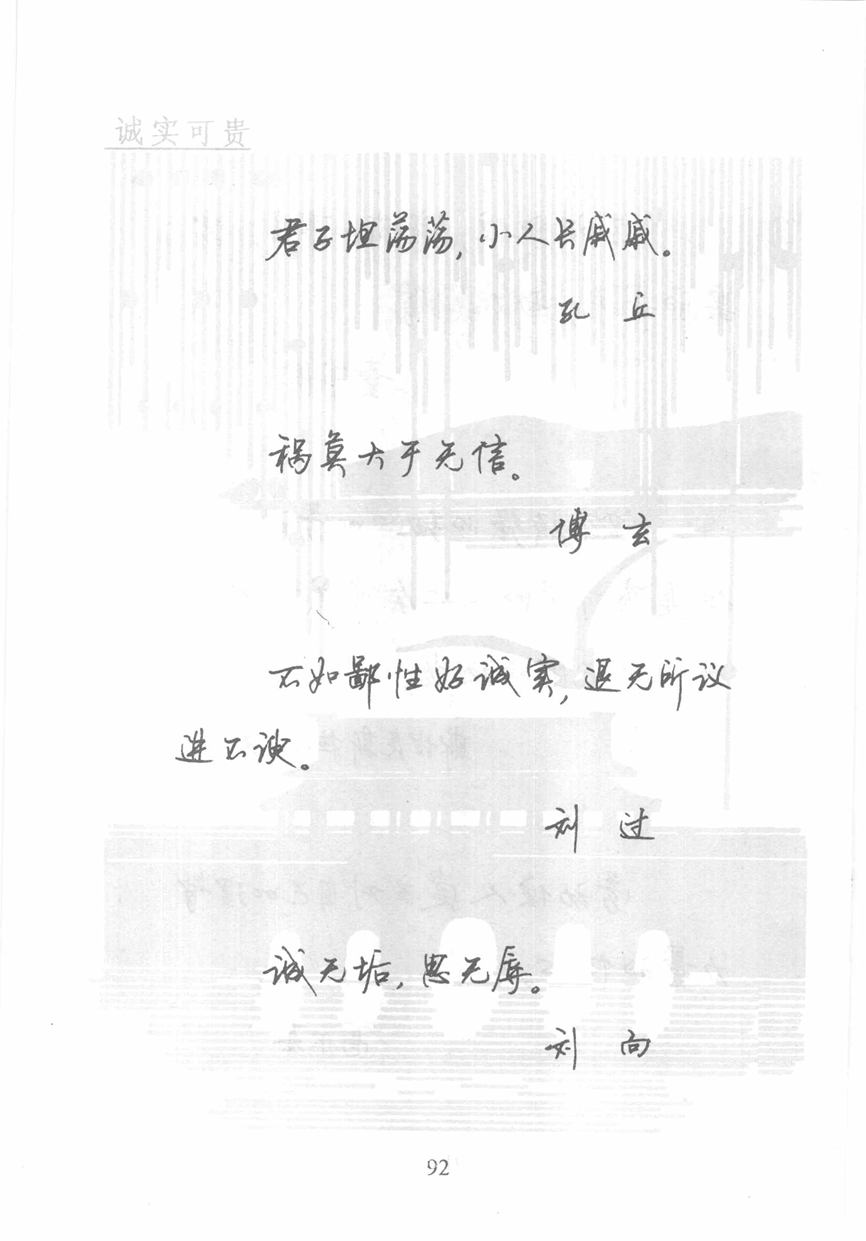 诚实可贵
君子坦荡荡，小人长戚戚。
孔 丘
祸莫大于无信。
博 玄
不如鄙性好诚实，退无所议
进不谀。
刘 过
诚无垢，思无辱。
刘 向
92